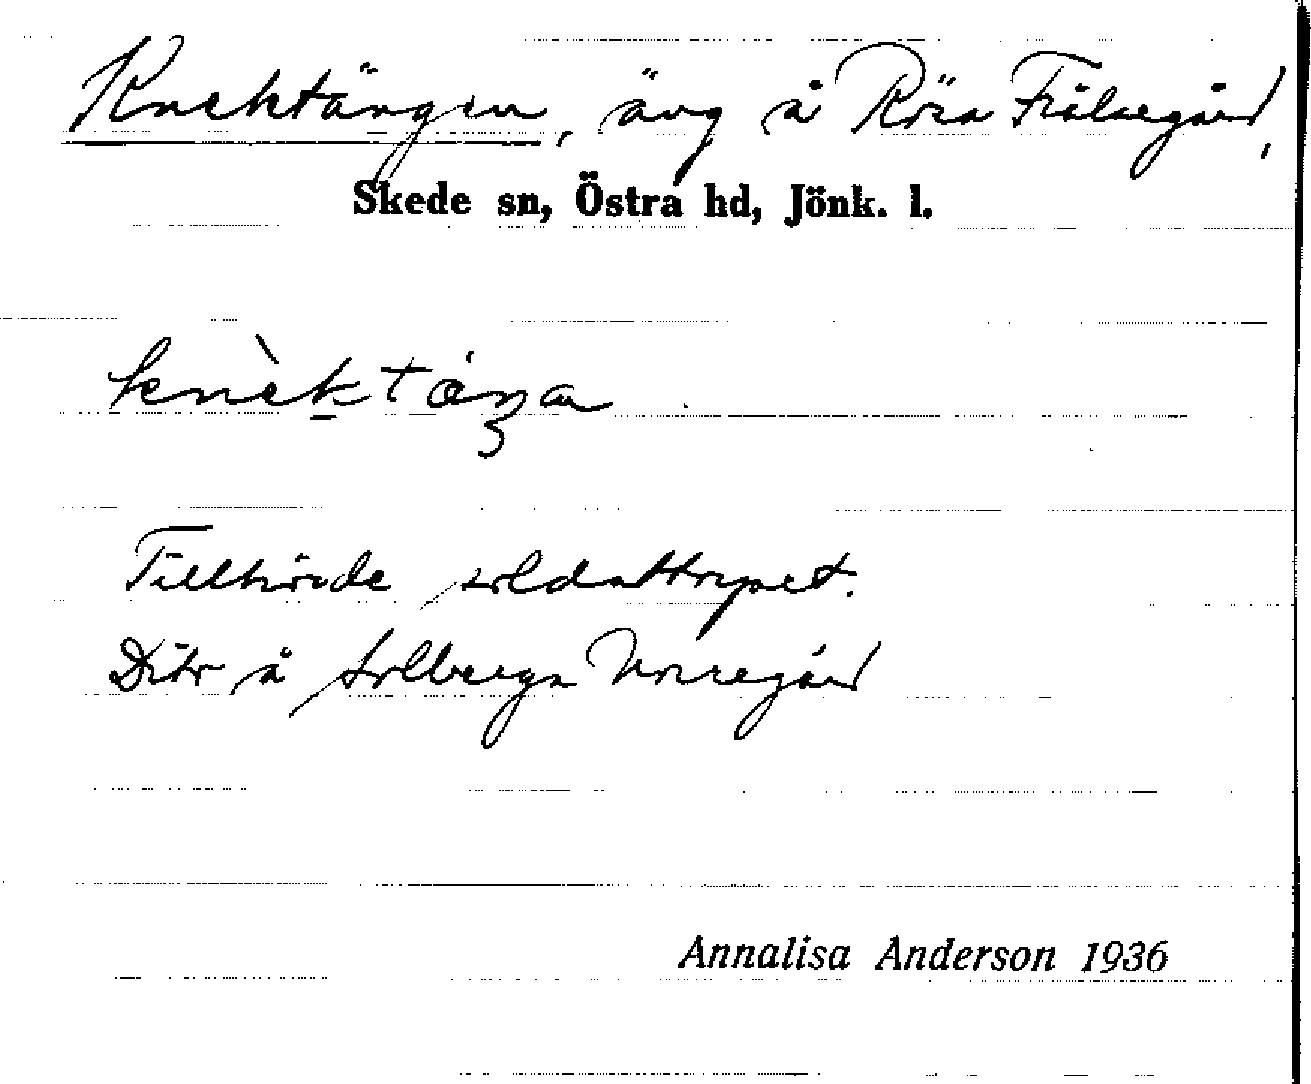 Knektängen, äng å Röra Frälsegård,
Skede sn, Östra hd, Jönk. l.
knὲktáŋa
Tillhörde soldattorpet.
Dito å Solberga Norregård
Annalisa Anderson 1936